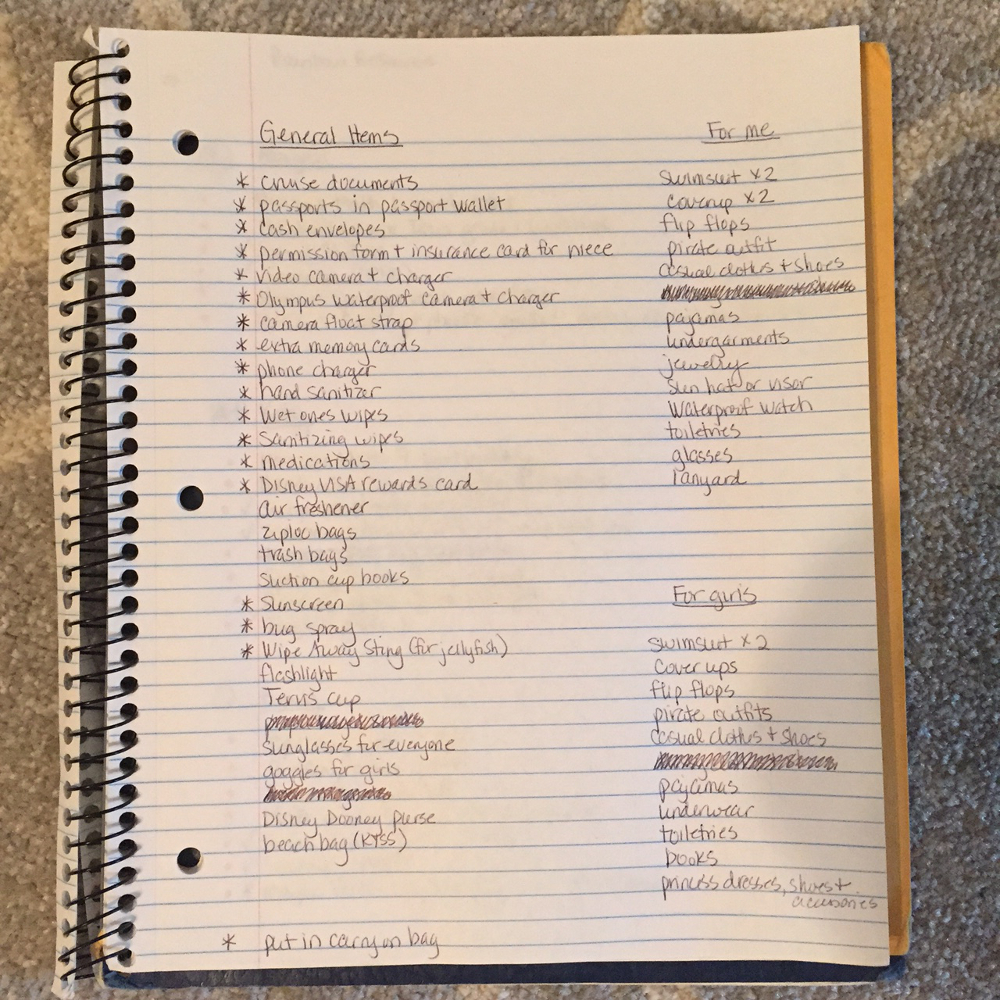 General Items
* cruise documents
* passports in passport wallet
* cash envelopes
* permission form + insurance card for niece
* Video camera + charger
* Olympus waterproof camera + charger
* camera float strap
* extra memory cards
* phone charger
* hand sanitizer
* Wet ones wipes
* Sanitizing wipes
* medications
* Disney VISA rewards card
air freshener
ziploc bags
trash bags
Suction cup hooks
* Sunscreen
* bug spray
* Wipe Away Sting (for jellyfish)
flashlight
Tervis cup
sunglasses for everyone
goggles for girls
Disney Dooney purse
beach bag (KTSS)
* put in carry on bag
For me
swimsuit x2
coverup x2
flip flops
pirate outfit
casual clothes + shoes
pajamas
undergarments
jewelry
sun hat or visor
Waterproof watch
toiletries
glasses
lanyard
For girls
swimsuit x2
cover ups
flip flops
pirate outfits
casual clothes + shoes
pajamas
underwear
toiletries
books
princess dresses, shoes +
accessories